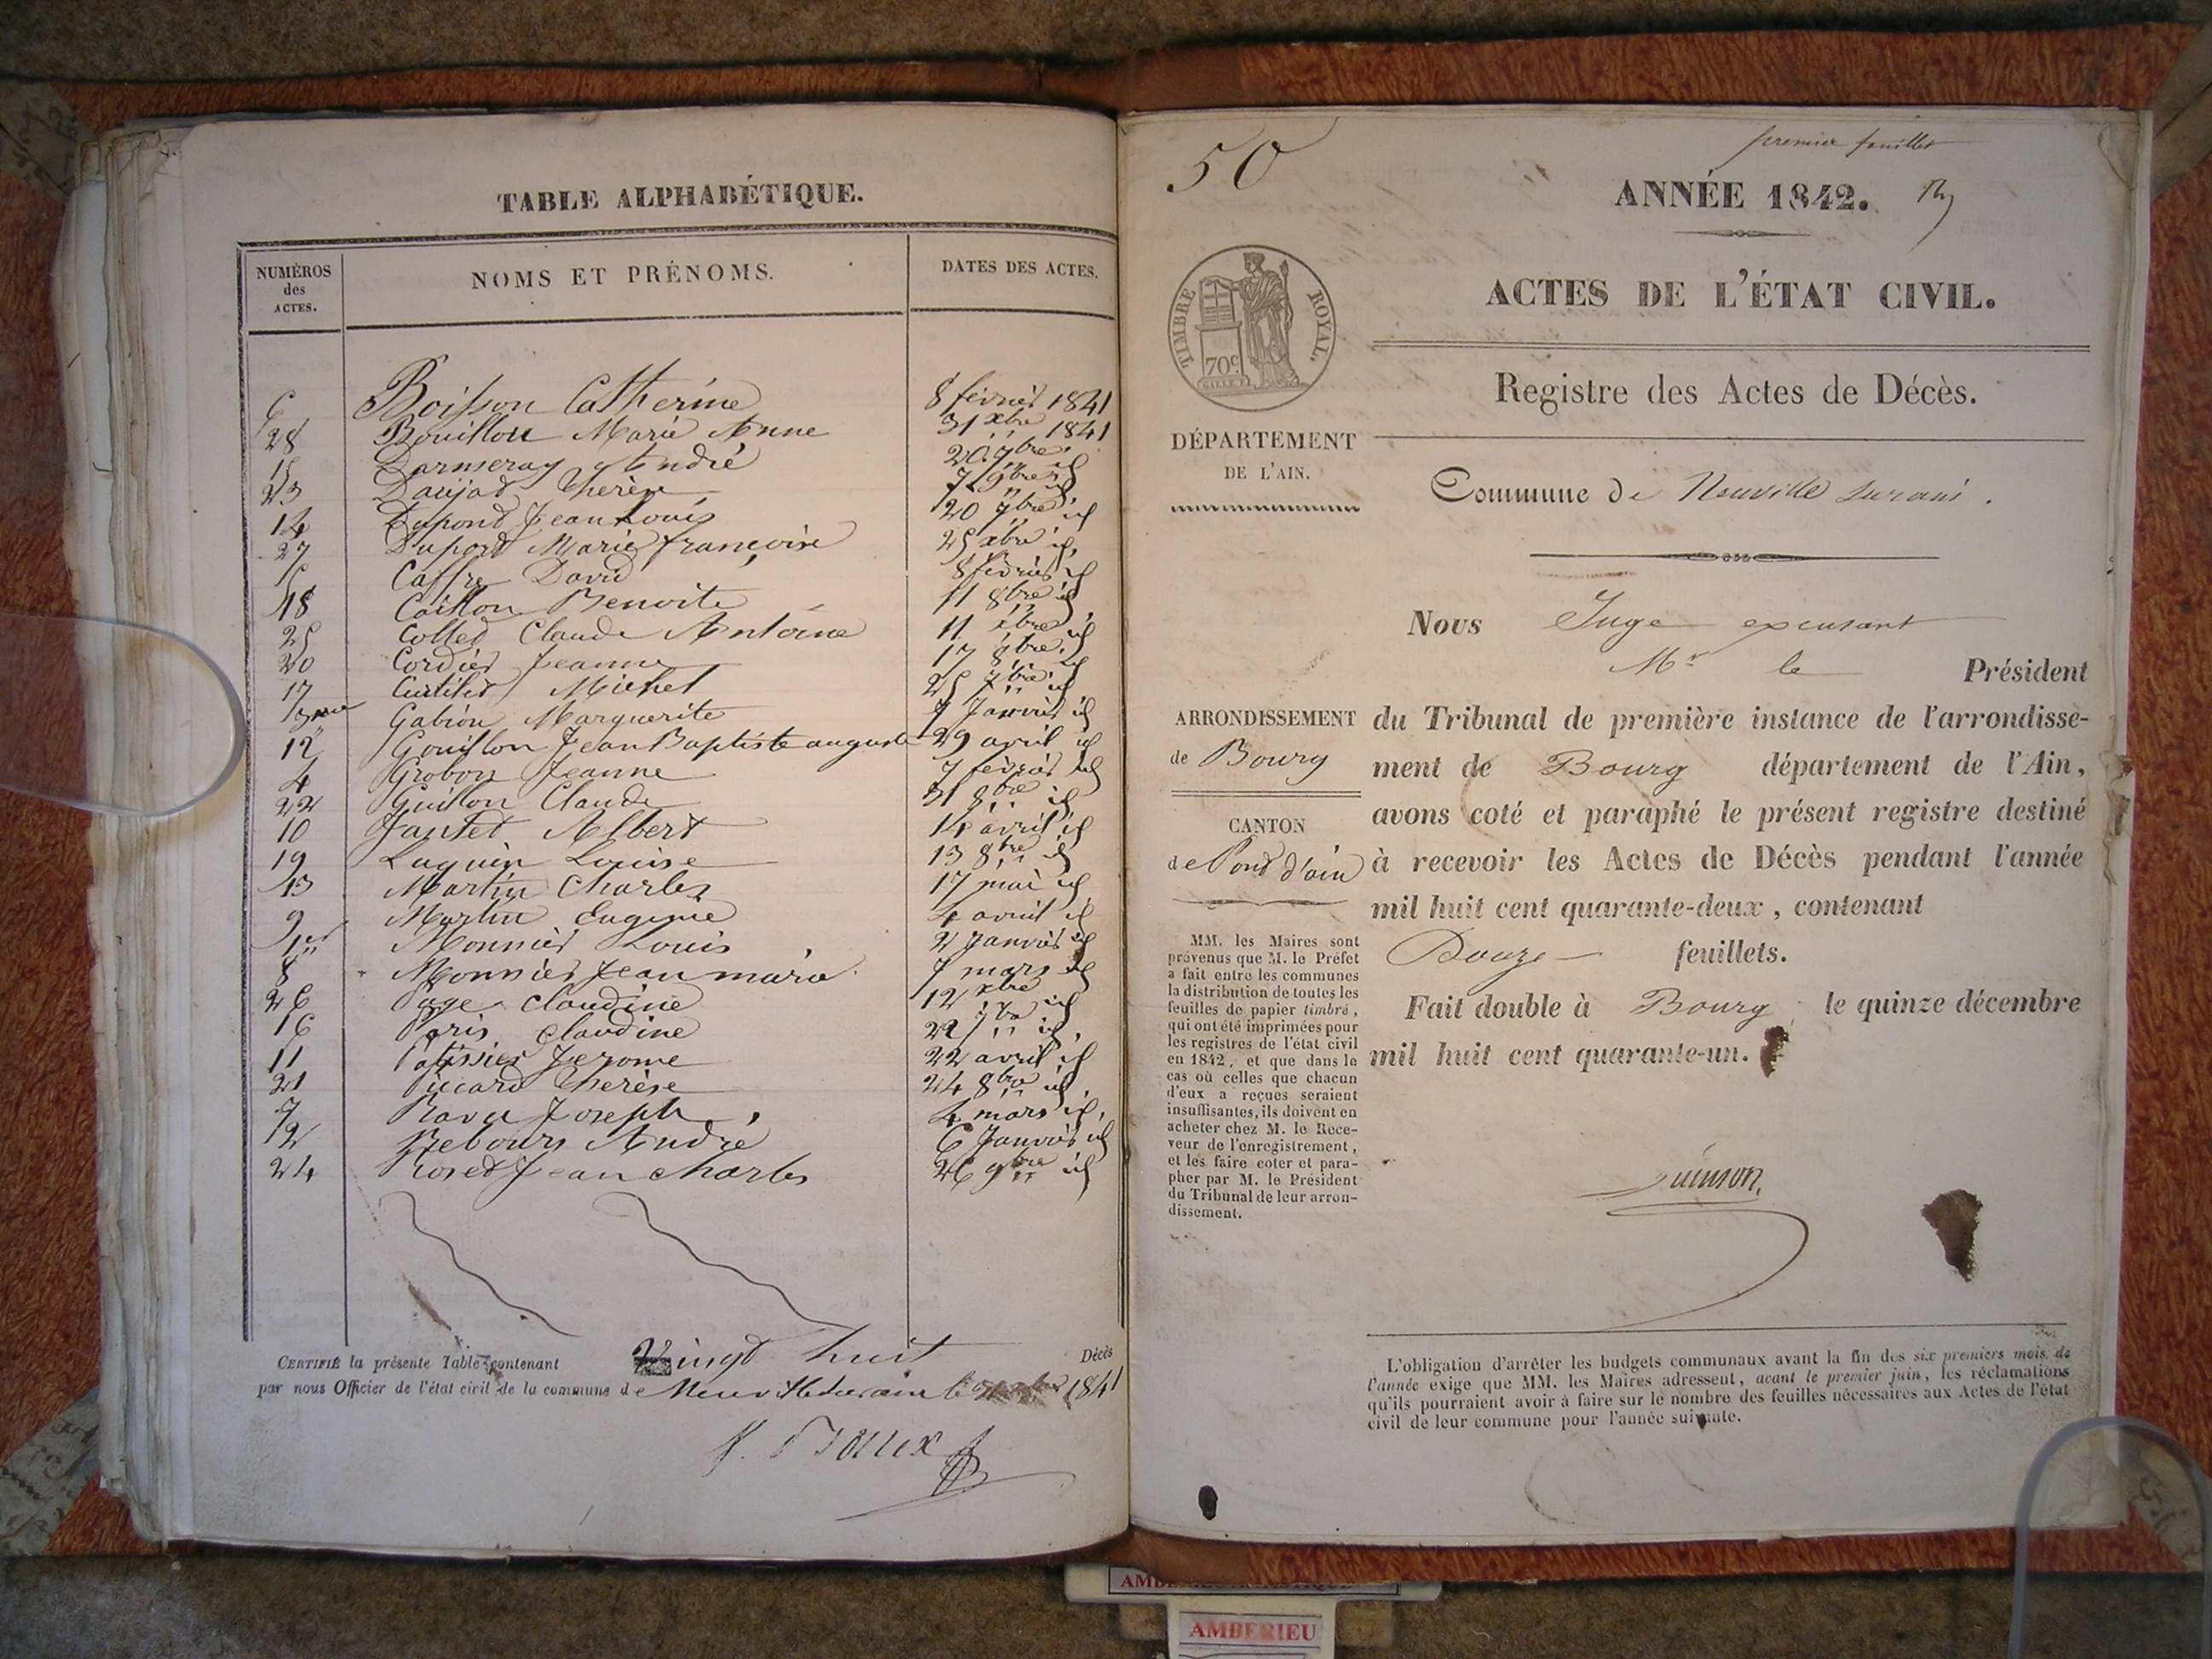 TABLE ALPHABÉTIQUE.
NUMÉROS des ACTES. NOMS ET PRÉNOMS. DATES DES ACTES.
6 Boisson Catherine 8 février 1841
28 Bouillon Marie Anne 31 xbre 1841
15 Darmeray André 20 7bre id
23 Daujat Therèse 7 9bre id
14 Dupond Jean Louis 20 7bre id
27 Duport Marie françoise 25 xbre id
5 Caffre David 8 février id
18 Caillon Benoite 11 8bre id
25 Collet Claude Antoine 11 xbre id
20 Cordier Jeanne 17 8bre id
17 Cutilier Michel 25 7bre id
3me Gabion Marguerite 7 Janvier id
12 Gouillon Jean Baptiste auguste 29 avril id
4 Grobon Jeanne 7 février id
22 Guillon Claude 31 8bre id
10 Jantet Albert 14 avril id
19 Luquin Louise 13 8bre id
13 Martin Charles 17 mai id
9 Martin Eugenie 4 avril id
1er Monnier Louis 2 Janvier id
8 Monnier Jean marie 7 mars id
26 Page Claudine 12 xbre id
16 Paris Claudine 22 7bre id
11 Patissier Jerome 22 avril id
21 Piccard Therèse 24 8bre id
7 Ravet Joseph 4 mars id
2 Rebours André 6 Janvier id
24 Roset Jean charles 26 9bre id
CERTIFIÉ la présente Table contenant Vingt huit Décès
par nous Officier de l'état civil de la commune de Neuville sur ain le 1841
50
premier feuillet
ANNÉE 1842.
ACTES DE L'ÉTAT CIVIL.
TIMBRE ROYAL.
70c
Registre des Actes de Décès.
DÉPARTEMENT
DE L'AIN.
Commune de Neuville sur ain.
Nous Juge excusant
Mr le Président
ARRONDISSEMENT
de Bourg
du Tribunal de première instance de l'arrondisse-
ment de Bourg département de l'Ain,
avons coté et paraphé le présent registre destiné
CANTON
de Pont d'ain
à recevoir les Actes de Décès pendant l'année
mil huit cent quarante-deux, contenant
Douze feuillets.
Fait double à Bourg, le quinze décembre
mil huit cent quarante-un.
MM. les Maires sont
prévenus que M. le Préfet
a fait entre les communes
la distribution de toutes les
feuilles de papier timbré,
qui ont été imprimées pour
les registres de l'état civil
en 1842, et que dans le
cas où celles que chacun
d'eux a reçues seraient
insuffisantes, ils doivent en
acheter chez M. le Rece-
veur de l'enregistrement,
et les faire coter et para-
pher par M. le Président
du Tribunal de leur arron-
dissement.
L'obligation d'arrêter les budgets communaux avant la fin des six premiers mois de
l'année exige que MM. les Maires adressent, avant le premier juin, les réclamations
qu'ils pourraient avoir à faire sur le nombre des feuilles nécessaires aux Actes de l'état
civil de leur commune pour l'année suivante.
AMBERIEU